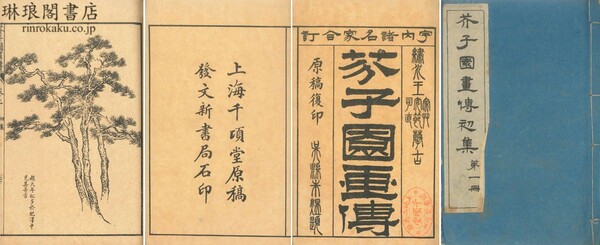 琳琅閣書店
rinrokaku.co.jp
上海千頃堂原稿
發文新書局石印
宇內諸名家合訂
繡水王
芥子園畫傳
原稿復印
芥子園畫傳初集
第一冊